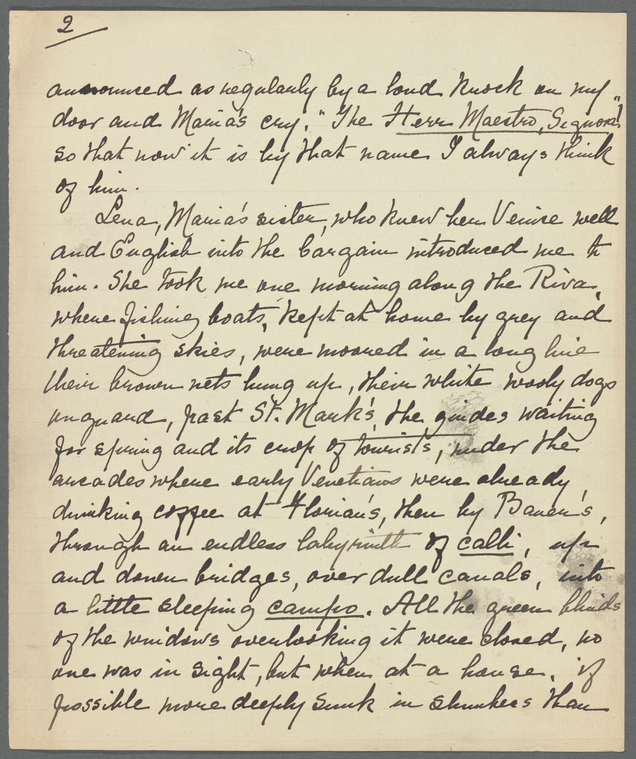 2
announced as regularly by a loud knock on my
door and Maria's cry. "The Herr Maestro, Signora!"
so that now it is by that name I always think
of him.
Lena, Maria's sister, who knew her Venice well
and English into the bargain introduced me to
him. She took me one morning along the Riva,
where fishing boats, kept at home by grey and
threatening skies, were moored in a long line
their brown nets hung up, their white wooly dogs
on guard, past St. Mark's, the guides waiting
for spring and its crop of tourists, under the
arcades where early Venetians were already
drinking coffee at Florian's, then by Bauer's,
through an endless labyrinth of calli, up
and down bridges, over dull canals, into
a little sleeping campo. All the green blinds
of the windows overlooking it were closed, no
one was in sight, but when at a house, if
possible more deeply sunk in slumbers than